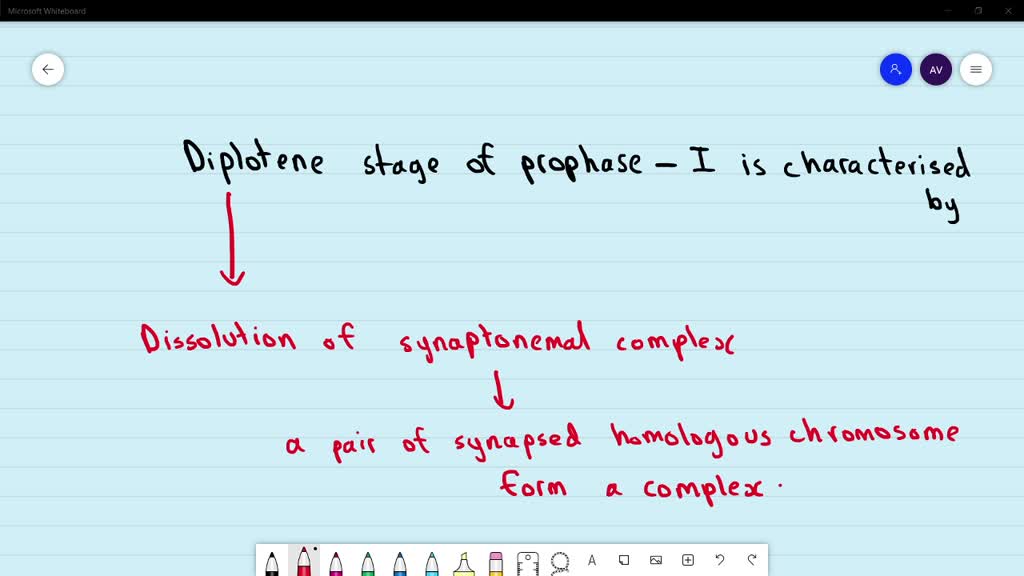 Microsoft Whiteboard
AV
Diplotene stage of prophase - I is characterised
by
Dissolution of synaptonemal complex
a pair of synapsed homologous chromosome
form a complex.
A